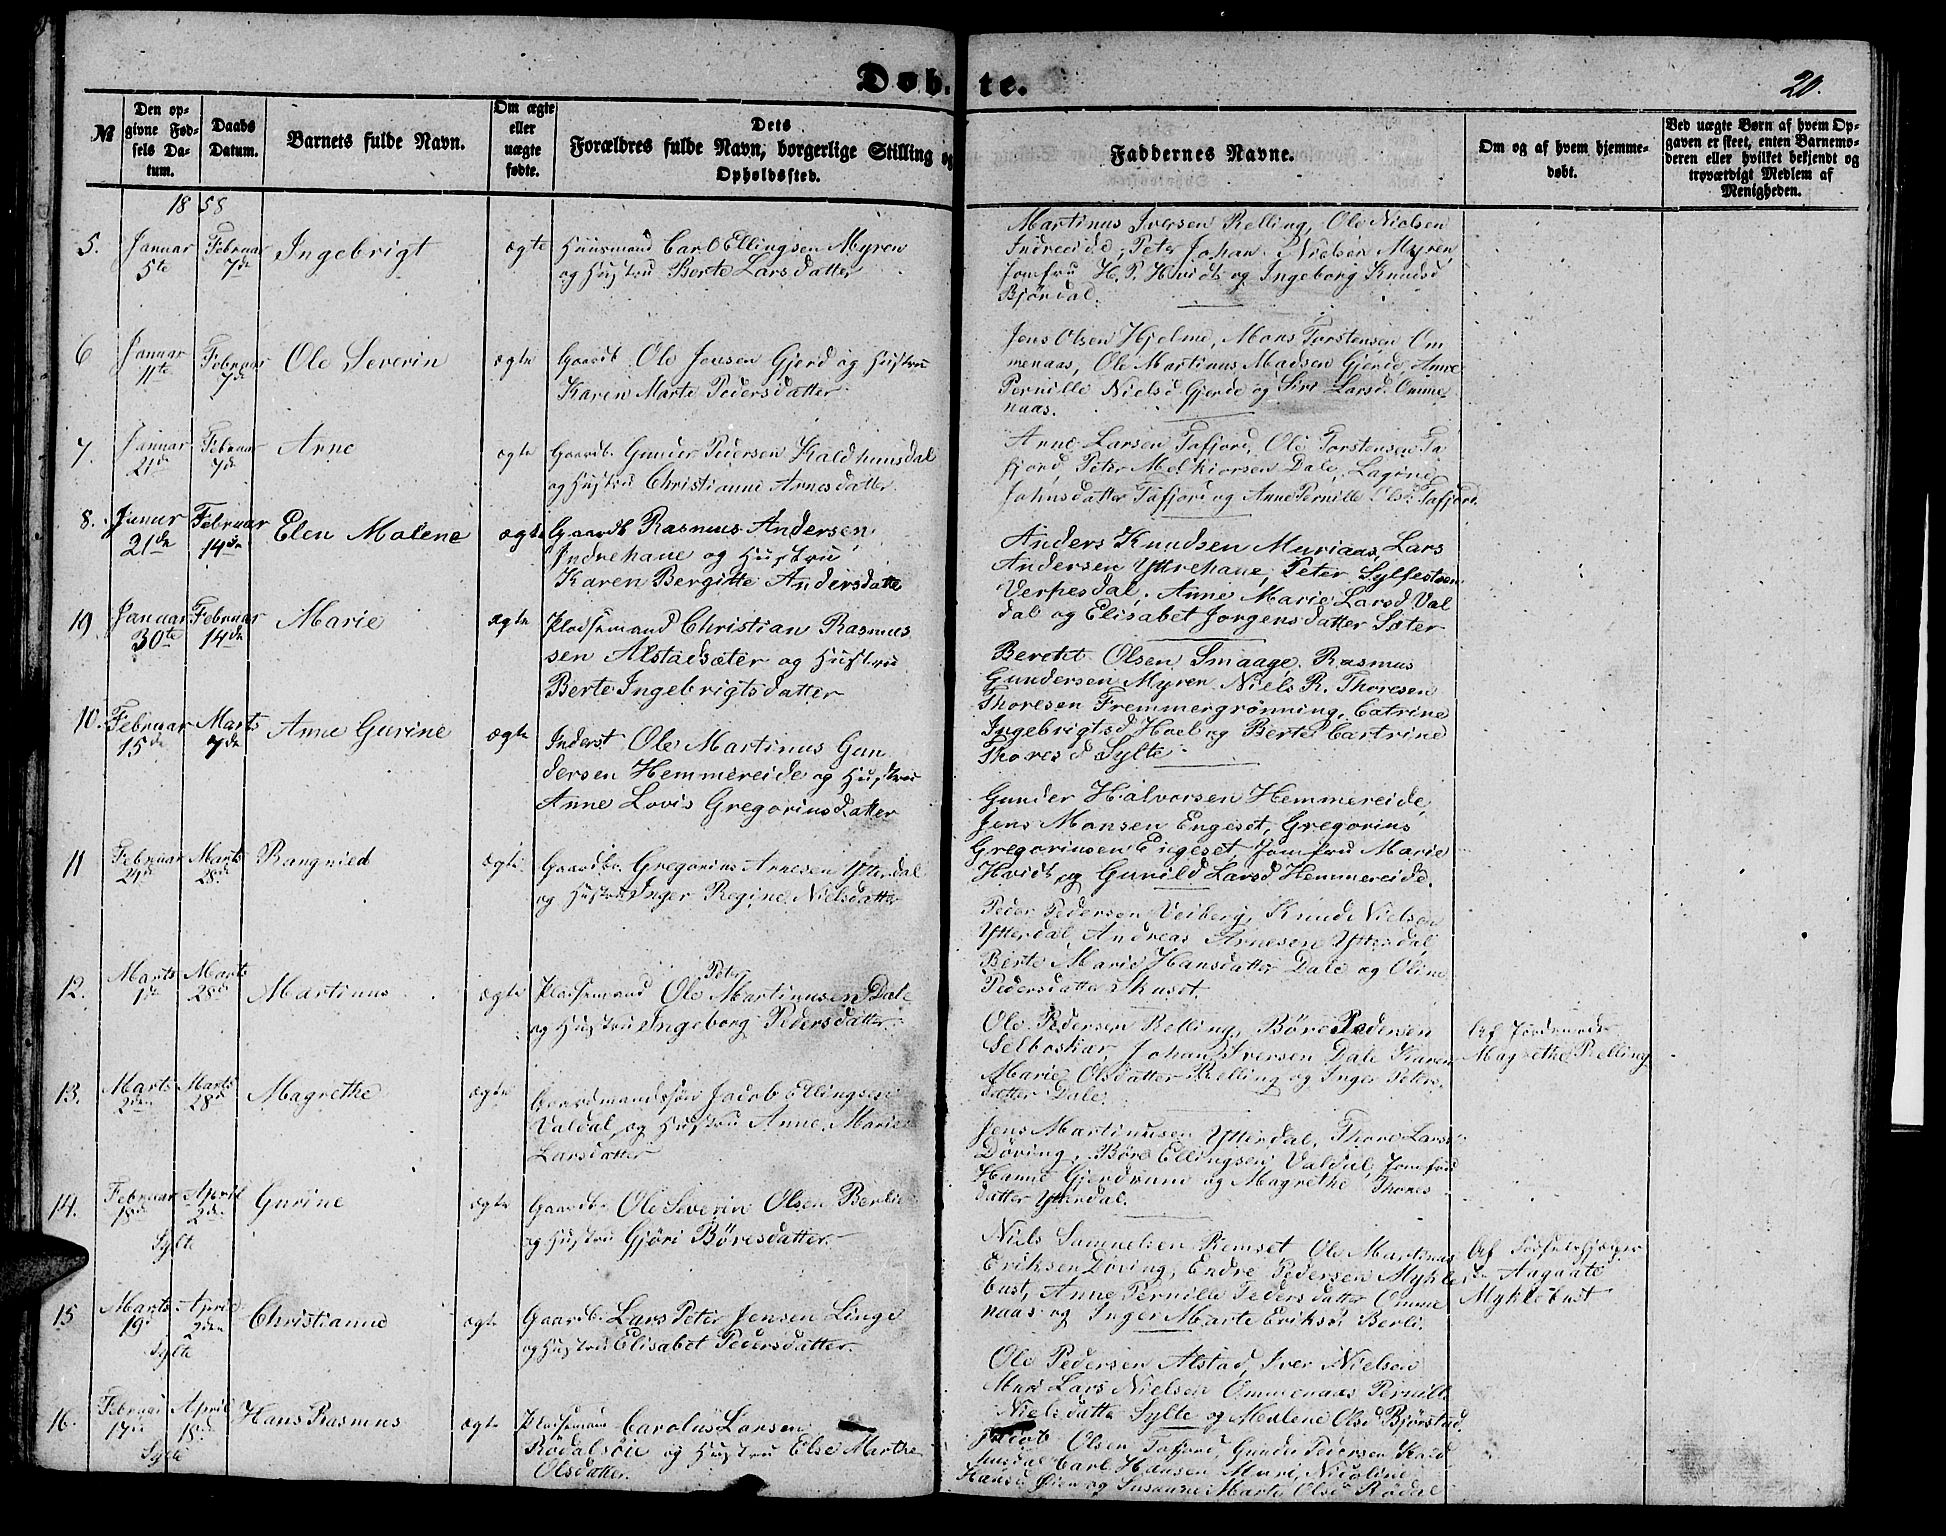 Døb-te.
20.
№
Den opgivne Fødsels Datum.
Daabs Datum.
Barnets fulde Navn.
Om ægte eller uægte fødte.
Dets Forældres fulde Navn, borgerlige Stilling og Opholdssted.
Faddernes Navne.
Om og af hvem hjemmedøbt.
Ved uægte Børn af hvem Opgaven er skeet, enten Barnemoderen eller hvilket bekjendt og troværdigt Medlem af Menigheden.
1858
5. Januar 5te Februar 7de Ingebrigt ægte Huusmand Carl Ellingsen Myren
og Hustru Berte Larsdatter
Martinus Iversen Relling, Ole Nielsen
Indreeide, Peter Johan Nielsen Myren,
Jomfru H. P. Hvidt og Ingeborg Knudsd
Bjørdal.
6 Januar 11te Februar 7de Ole Severin ægte Gaardb. Ole Jensen Gjerd og Hustru
Karen Marte Pedersdatter
Jens Olsen Hjelme, Mons Torstensen Om
menaas, Ole Martinus Madsen Gjerde, Anne
Pernille Nielsd Gjerde og Siri Larsd. Omme
naas.
7. Januar 21de Februar 7de Anne ægte Gaardb. Gunder Pedersen Kaldhuusdal
og Hustru Christianne Arnesdatter
Arne Larsen Tafjord, Ole Torstensen Ta
fjord, Peter Melkiorsen Dale, Lagine
Johnsdatter Tafjord og Anne Pernille Olsd. Tafjord.
8. Janur 21de Februar 14de Elen Malene ægte Gaardb Rasmus Andersen
Indrehane og Hustru
Karen Bergitte Andersdatte
Anders Knudsen Muriaas, Lars
Andersen Yttrehane, Peter Sylfestsen
Verpesdal, Anne Marie Larsd. Val
dal og Elisabet Jorgensdatter Sæter
19. Januar 30te Februar 14de Marie ægte Pladsemand Christian Rasmus
sen Alstadsæter og Hustru
Berte Ingebrigtsdatter
Berent Olsen Smaage, Rasmus
Gundersen Myren Niels R. Thoresen
Thoresen Fremmergrønning, Catrine
Ingebrigtsd Hoel og Berte Cartrine
Thoresd Sylte
10. Februar 15de Marts 7de Anne Gurine ægte Inderst Ole Martinus Gun
dersen Hemmereide og Hustru
Anne Lovis Gregoriusdatter
Gunder Halvorsen Hemmereide,
Jens Mansen Engeset, Gregorius
Gregoriussen Engeset, Jomfru Marie
Hvidt og Gunild Larsd Hemmereide.
11 Februar 24de Marts 28de Rangnied ægte. Gaardbr. Gregorius Arnesen Ytterdal
og Hustru Inger Regine Nielsdatter
Peder Pedersen Veiberg, Knud Nielsen
Ytterdal, Andreas Arnesen Ytterdal,
Berte Marie Hansdatter Dale og Oline
Pedersdatter Skuset.
12. Marts 1de Marts 28de Martinus ægte Pladsemand Ole Peter Martinusen Dale
og Hustru Ingeborg Pedersdatter
Ole Pedersen Relling, Børe Pedersen
Selboskar, Johan Iversen Dale Karen
Marie Olsdatter Relling og Inger Peters
datter Dale.
Af Jordmoder
Magrethe Relling
13. Marts 2den Marts 28de Magrethe ægte Gaardmandssøn Jacob Ellingsen
Valdal, og Hustru Anne Marie
Larsdatter
Jens Martinusen Ytterdal, Thore Lars
Døving, Børe Ellingsen Valdal, Jomfru
Hanne Gjerdrum og Magrethe Thores
datter Ytterdal.
14. Februar 18de April 2den Sylte Gurine ægte Gaardb. Ole Severin Olsen Berlie
og Hustru Gjøri Børesdatter.
Niels Samuelsen Remset Ole Martinus
Eriksen Døving, Endre Pedersen Mykle
bust, Anne Pernille Pedersdatter Omme
naas og Inger Marte Eriksd. Berli.
Af Fødselshjælper
den Aagaate
Myklebust
15 Marts 19d April 2den Sylte Christianne ægte Gaardb. Lars Peter Jensen Linge
og Hustru Elisabet Pedersdatter.
Ole Pedersen Alstad, Iver Nielsen
Muri Lars Nielsen Ommenaas Pernille
Nielsdatter Sylte og Malene Olsd Bjørstad.
16. Februar 17de April 18de Sylte Hans Rasmus ægte Pladsemand Carolus Larsen
Rødalsøie og Hustru Else Marthe
Olsdatter.
Jacob Olsen Tafjord, Gunder Pedersen Kald
husdal Carl Hansen Muri, Nicoline
Hansd Øien og Susanne Marte Olsd Rødal